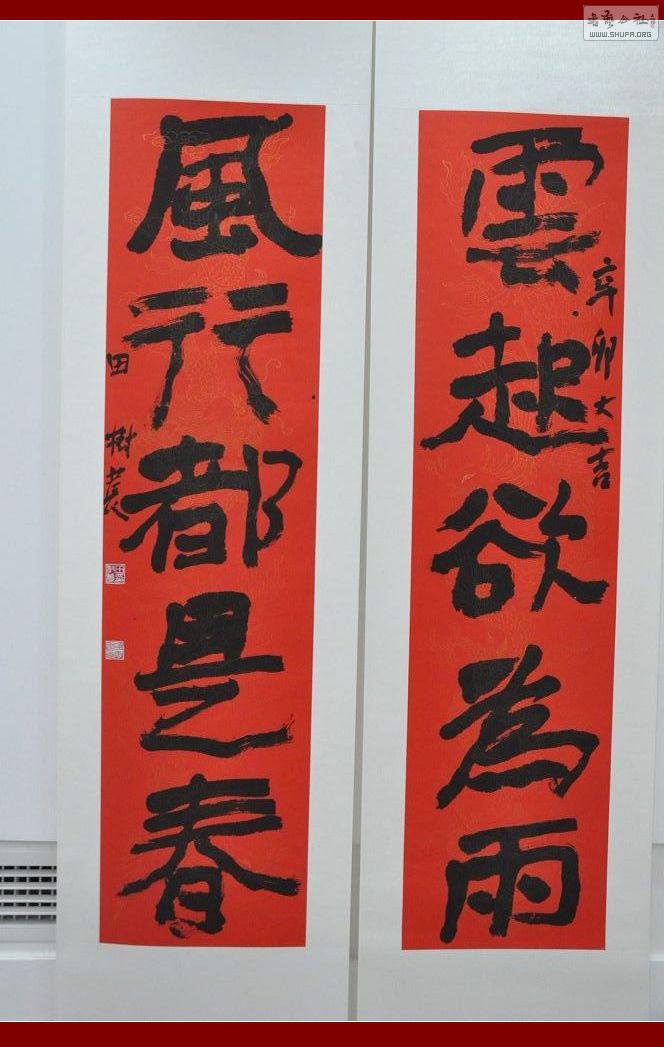 雲起欲為雨
辛卯大吉
風行都是春
田樹萇
書法公社
WWW.SHUFA.ORG